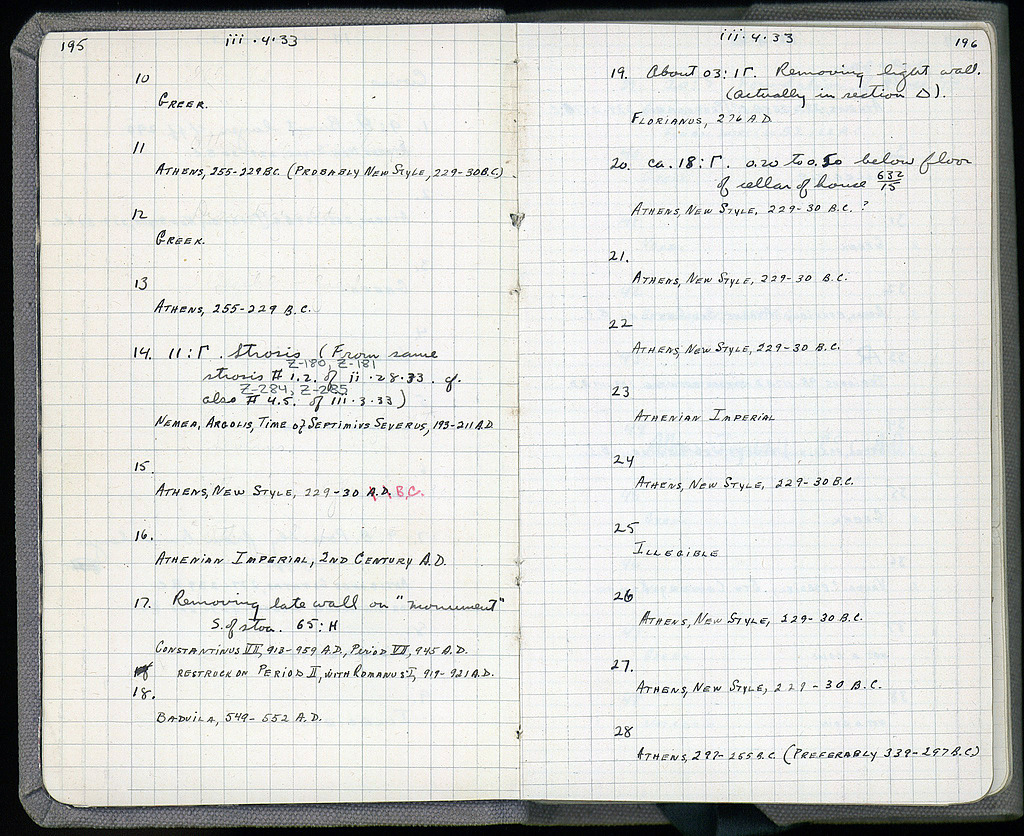 195
iii·4·33
10
GREEK.
11
ATHENS, 255-229 B.C. (PROBABLY NEW STYLE, 229-30 B.C.)
12
GREEK.
13
ATHENS, 255-229 B.C.
14. 11:Γ. Strosis (From same
Z-180, Z-181
strosis # 1.2. of ii·28·33. cf.
Z-284, Z-285
also # 4.5. of iii·3·33)
NEMEA, ARGOLIS, TIME of SEPTIMIUS SEVERUS, 193-211 A.D.
15.
ATHENS, NEW STYLE, 229-30 A.D. B.C.
16.
ATHENIAN IMPERIAL, 2ND CENTURY A.D.
17. Removing late wall on "monument"
S. of stoa. 65:H
CONSTANTINUS VII, 913-959 A.D., PERIOD VII, 945 A.D.
RESTRUCK ON PERIOD II, WITH ROMANUS I, 919-921 A.D.
18.
BADUILA, 549-552 A.D.
iii·4·33
196
19. About 03:1Γ. Removing light wall.
(actually in section Δ).
FLORIANUS, 276 A.D
20. ca. 18:Γ. 0.20 to 0.50 below floor
of cellar of house 632/15
ATHENS, NEW STYLE, 229-30 B.C. ?
21.
ATHENS, NEW STYLE, 229-30 B.C.
22
ATHENS, NEW STYLE, 229-30 B.C.
23
ATHENIAN IMPERIAL
24
ATHENS, NEW STYLE, 229-30 B.C.
25
ILLEGIBLE
26
ATHENS, NEW STYLE, 229-30 B.C.
27.
ATHENS, NEW STYLE, 229-30 B.C.
28
ATHENS, 297-255 B.C (PREFERABLY 339-297 B.C)